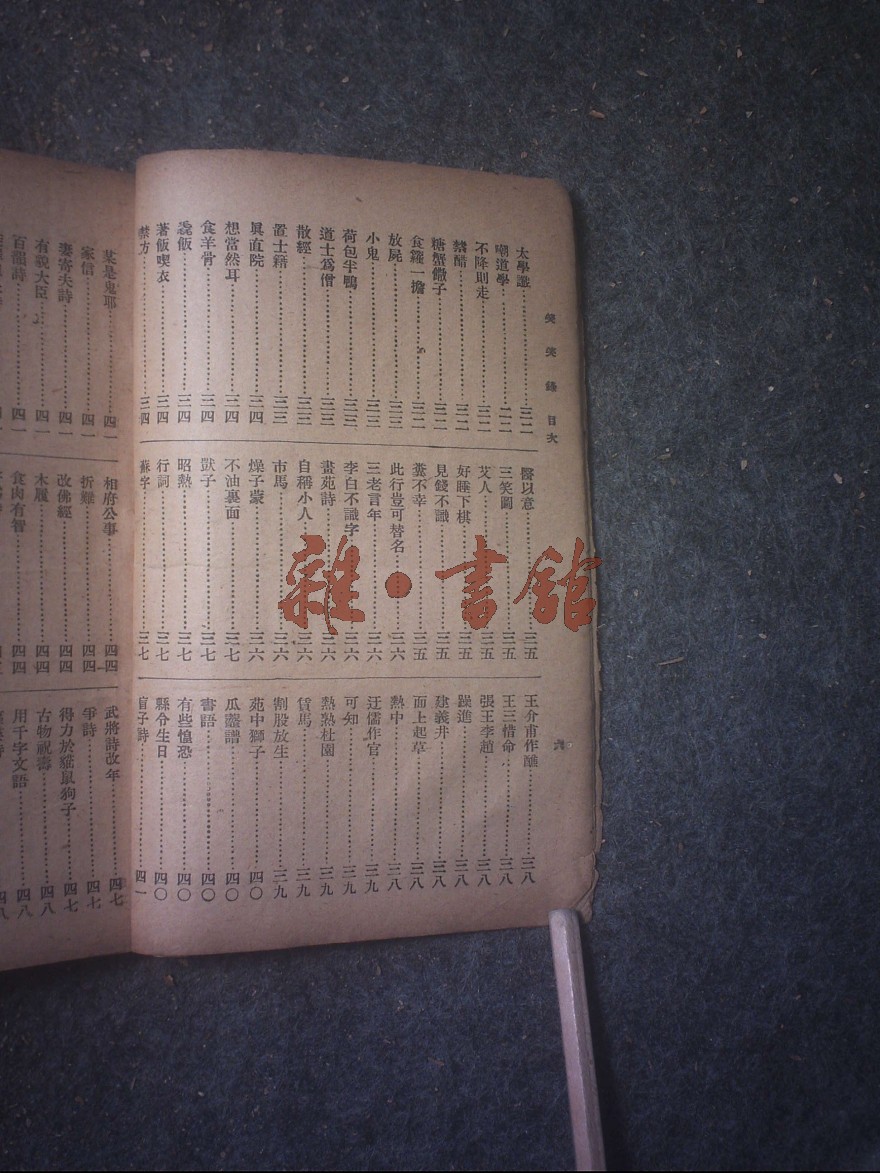 笑笑錄 目次
六
太學讖……三二
嘲道學……三二
不降則走……三二
禁醋……三二
糖蟹饊子……三二
食籮一擔……三二
放屁……三三
小鬼……三三
荷包半鴨……三三
道士爲僧……三三
散經……三三
置士籍……三三
具直院……三四
想當然耳……三四
食羊骨……三四
毳飯……三四
著飯喫衣……三四
禁方……三四
醫以意……三五
三笑圖……三五
艾人……三五
好睡下棋……三五
見錢不識……三五
糞不幸……三五
此行豈可替名……三六
三老言年……三六
李白不識字……三六
畫苑詩……三六
自稱小人……三六
市馬……三六
燥子蒙……三六
不油裏面……三七
獃子……三七
昭熱……三七
行詞……三七
蘇字……三七
王介甫作醮……三八
王三惜命……三八
張王李趙……三八
躁進……三八
建義井……三八
面上起草……三八
熱中……三八
迂儒作官……三九
可知……三九
熱熟杜園……三九
賃馬……三九
割股放生……三九
苑中獅子……四〇
瓜虀譜……四〇
書語……四〇
有些惶恐……四〇
縣令生日……四〇
盲子詩……四一
某是鬼耶……四一
家信……四一
妻寄夫詩……四一
有貌大臣……四一
百韻詩……四一
相府公事……四四
折難……四四
改佛經……四四
木履……四四
食肉有智……四四
武將詩改年……四七
爭詩……四七
得力於貓鼠狗子……四七
古物祝壽……四八
用千字文語……四八
雜·書館